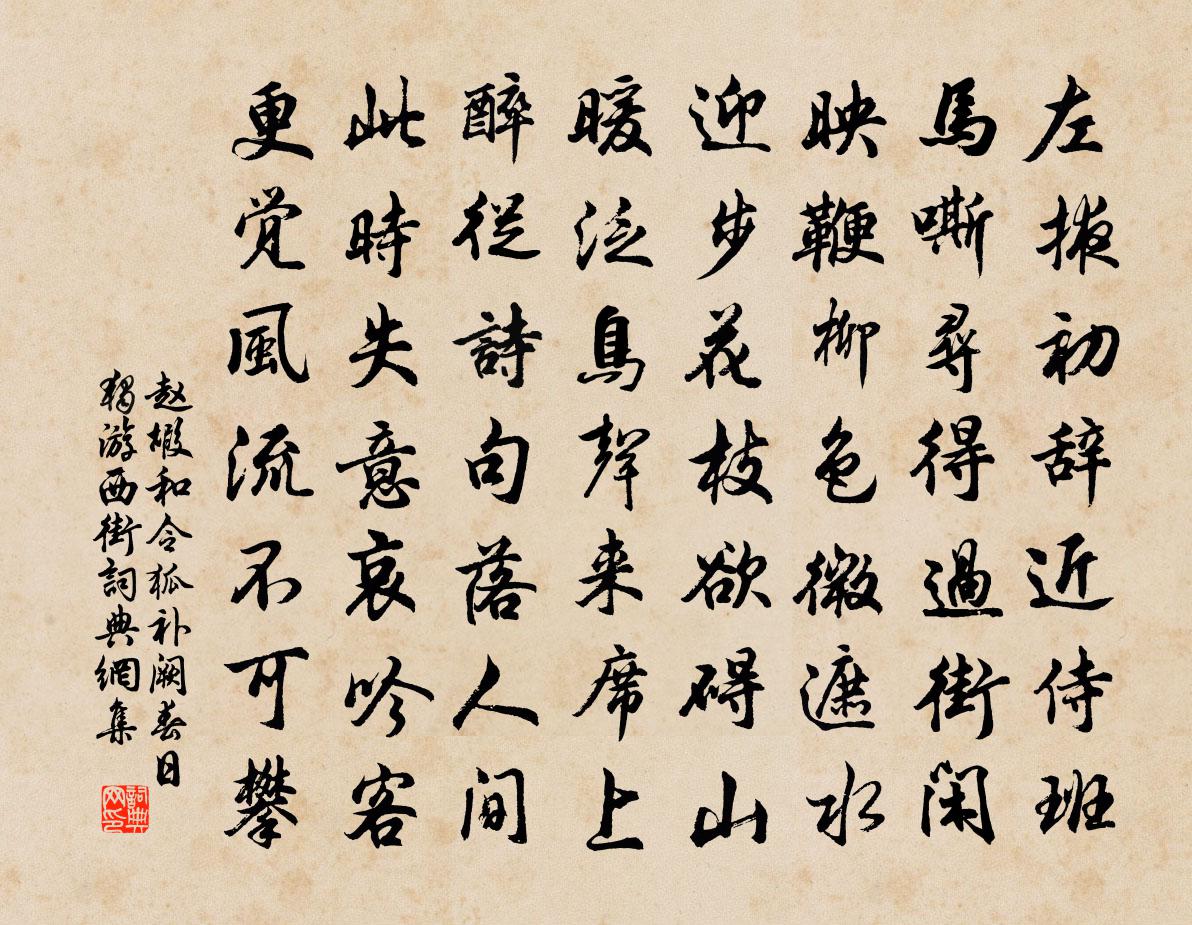 左掖初辞近侍班
馬嘶尋得過街闲
映鞭柳色微遮水
迎步花枝欲碍山
暖泛鳥聲来席上
醉從詩句落人间
此時失意哀吟客
更觉風流不可攀
赵嘏和令狐补阙春日
獨游西街詞典網集
詞典
网印